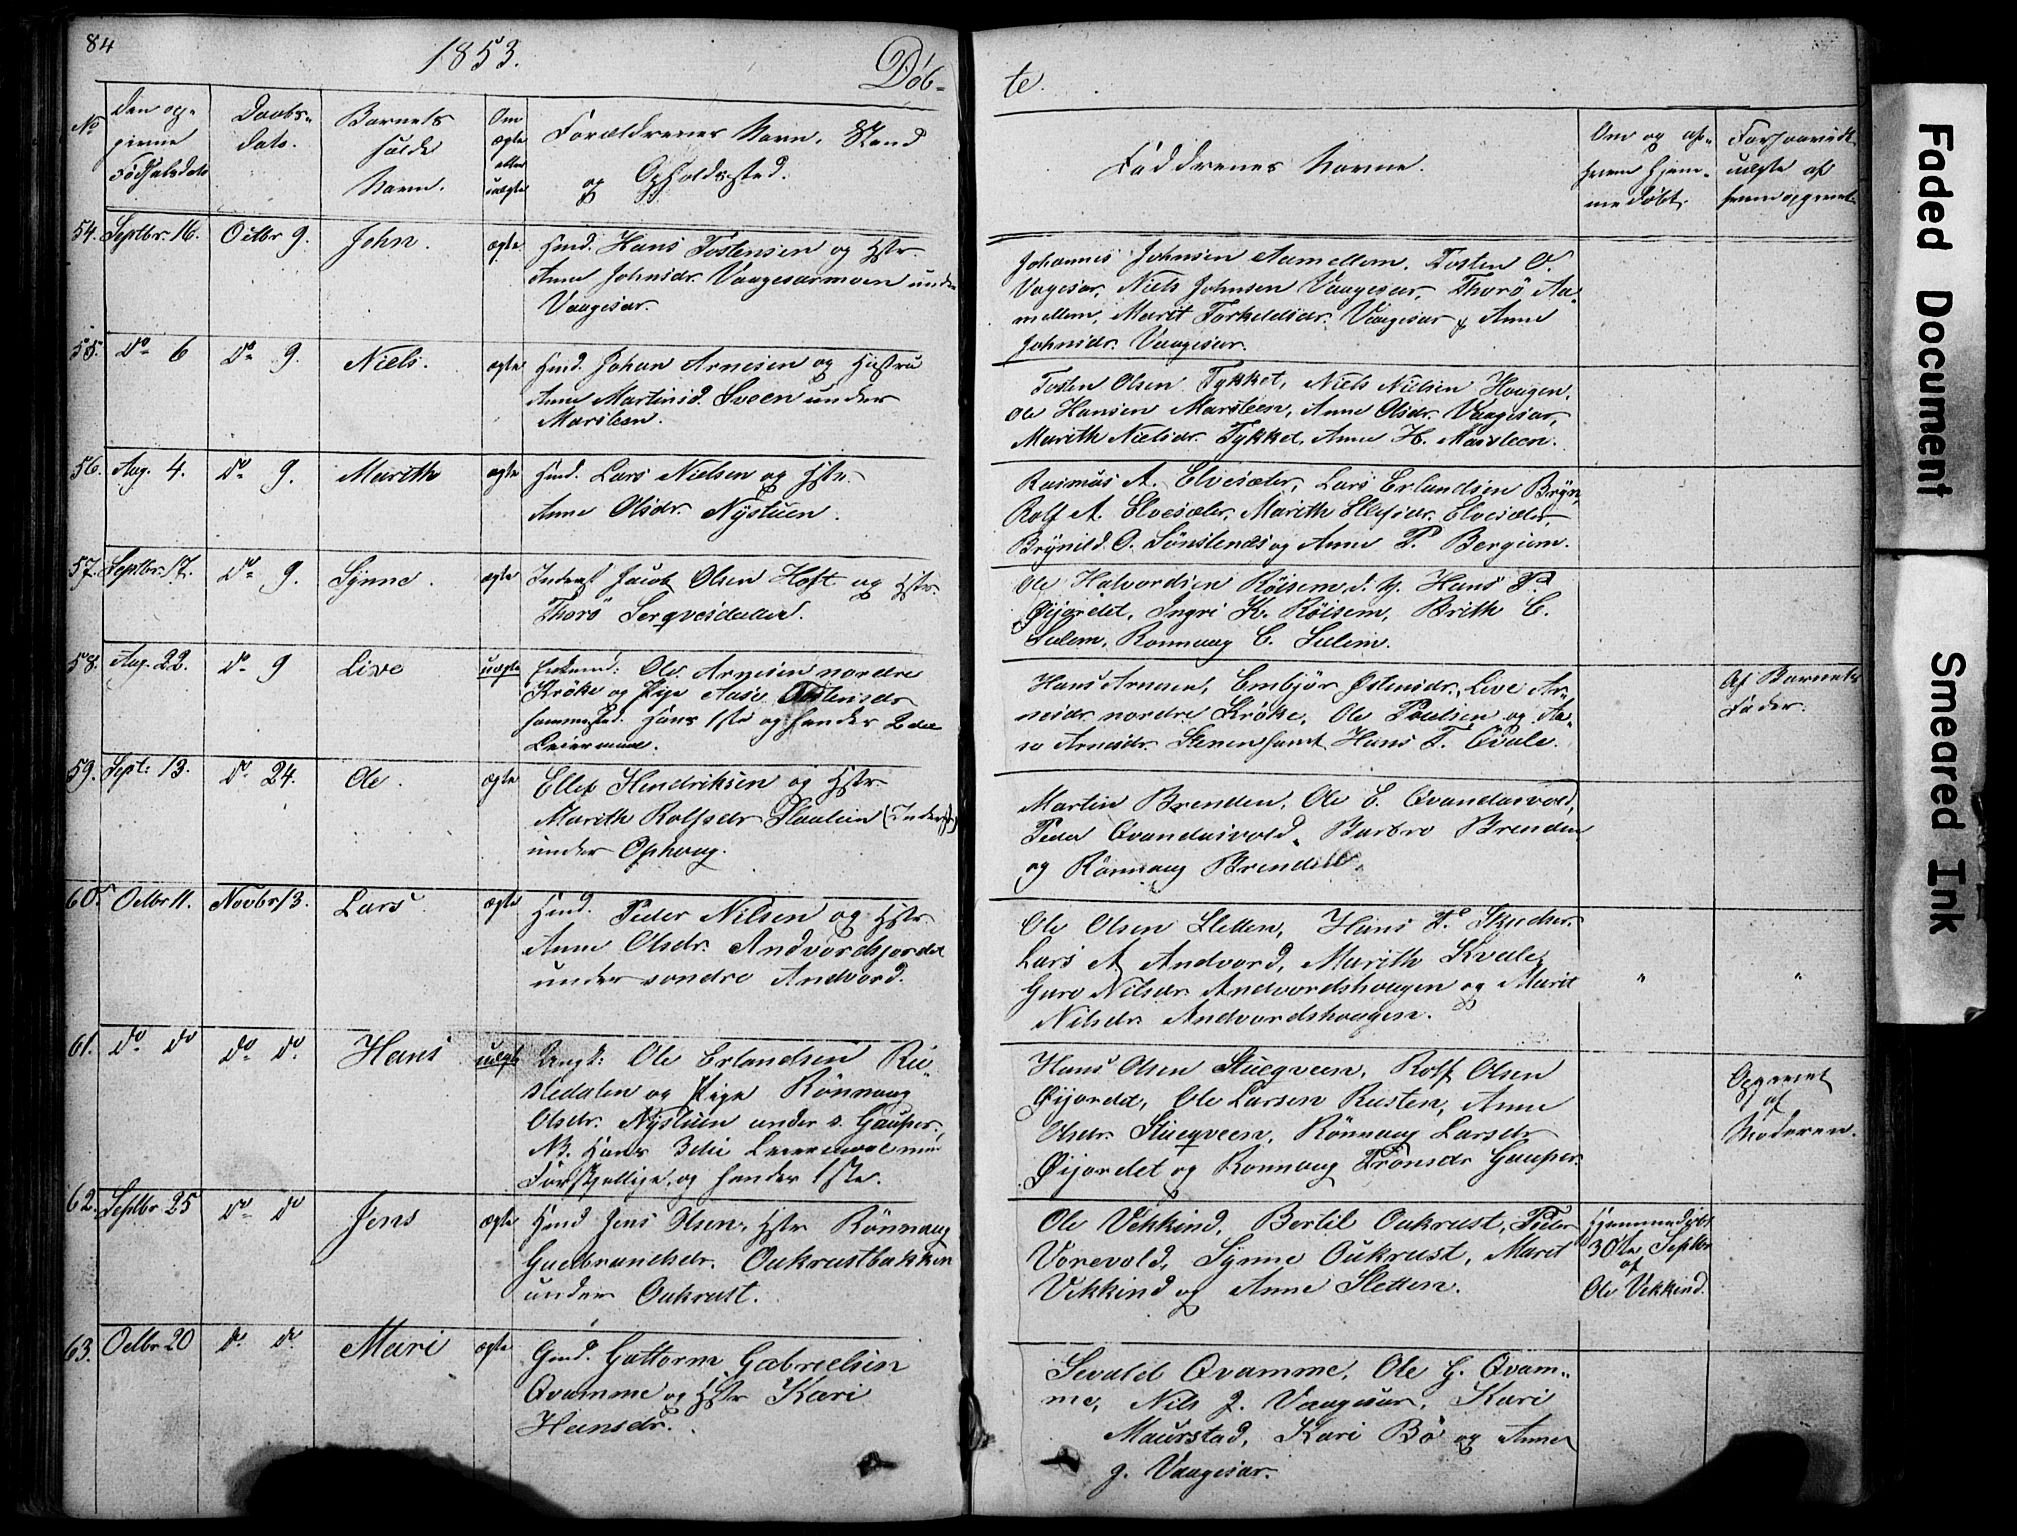 84
1853.
Døb-
te.
No
Den op-
givne
Fødselsdato
Daabs-
dato.
Barnets
fulde
Navn.
Om
ægte
eller
uægte
Forældrenes Navn, Stand
og Opholdssted.
Faddrenes Navne.
Om og af
hvem hjem-
medøbt.
54. Septbr. 16. Octbr 9. John. ægte
Hmd. Hans Tostensen og Hstr.
Anne Johnsdr. Vaagesarmoen under
Vaagesar.
Johannes Johnsen Aamellem, Tosten O.
Vagesar, Niels Johnsen Vaagesar, Thorø Aa-
mellem, Marit Torkeldsdr. Vaagesar & Anne
Johnsdr. Vaagesar.
55. Do 6 Do 9. Niels. ægte
Hmd. Johan Arnesen og Hustru
Anne Martinsd. Sveen under
Marsteen.
Tosten Olsen Tykket, Niels Nielsen Haugen,
Ole Hansen Marsteen, Anne Olsdr. Vaagesar,
Marith Nielsdr. Tykket, Anne H. Marsteen.
56. Aug. 4. Do 9. Marith ægte
Hmd. Lars Nielsen og Hstr.
Anne Olsdr. Nystuen.
Rasmus A. Elvesæter, Lars Erlandsen Bryn,
Rolf A. Elvesæter, Marith Ellefsdr. Elvesæter,
Brynild O. Sønstenæs og Anne P. Bergum.
57. Septbr. 17. Do 9. Synne. ægte
Inderst Jacob Olsen Hoft og Hstr.
Thorø
Ole Halvordsen Røisem, d. y. Hans P.
Øijordet, Ingri K. Røisem, Brith C.
Sulem, Rønnaug C. Sulem.
58. Aug. 22. Do 9 Live uægte
Ole Arnesen nordre
Krøke og Pige Aase Østensdr
sammested. Hans 1ste og hendes 2det
Leiermaal.
Hans Arnesen, Embjør Østensdr., Live Ar-
nesdr nordre Krøke, Ole Poulsen og Aa-
se Arnesdr. Steen samt Hans T. Qvale.
Af Barnets
Fader.
59. Sept: 13. Do 24. Ole. ægte
Ellef Hendriksen og Hstr.
Marith Rolfsdr (Inderst)
under Ophaug.
Martin Brenden, Ole E. Qvandesvold,
Peder Qvandesvold, Barbro Brenden
og Rønnaug Brenden.
60. Octbr 11. Novbr 13. Lars ægte
Hmd. Peder Nilsen og Hstr.
Anne Olsdr. Andvordsjordet
under søndre Andvord.
Ole Olsen Sletten, Hans P.
Lars A. Andvord, Marith Kvale,
Guro Nilsdr. Andvordshaugen og Marit
Nilsdr. Andvordshaugen.
" "
61. Do Do Do Do Hans uægte
Ungk: Ole Erlandsen Ru-
stedalen og Pige Rønnaug
Olsdr. Nystuen under s. Gaupar.
NB. Hans 3die Leiermaal med
Forskjellige, og hendes 1ste.
Hans Olsen Stuegveen, Rolf Olsen
Øijordet, Ole Larsen Rusten, Anne
Olsdr. Stuegveen, Rønnaug Larsdr
Øijordet og Rønnaug Tronsdr Gaupar.
Opgivet
af
Moderen.
62. Septbr 25 Do Do Jens ægte
Hmd Jens Olsen, Hstr Rønnaug
Gudbrandsdr. Oukrustbakken
under Oukrust.
Ole Vekkind, Bertil Oukrust, Peder
Vorevold, Synne Oukrust, Marit
Vekkind og Anne Sletten.
Hjemmedøbt
30te Septbr
af
Ole Vekkind.
63. Octbr 20 do do Mari ægte
Gmd. Guttorm Gabrielsen
Qvamme og Hstr Kari
Hansdr.
Sevald Qvamme, Ole G. Qvam-
me, Nils J. Vaagesar, Kari
Maurstad, Kari Bø og Anne
J. Vaagesar.
Faded Document
Smeared Ink